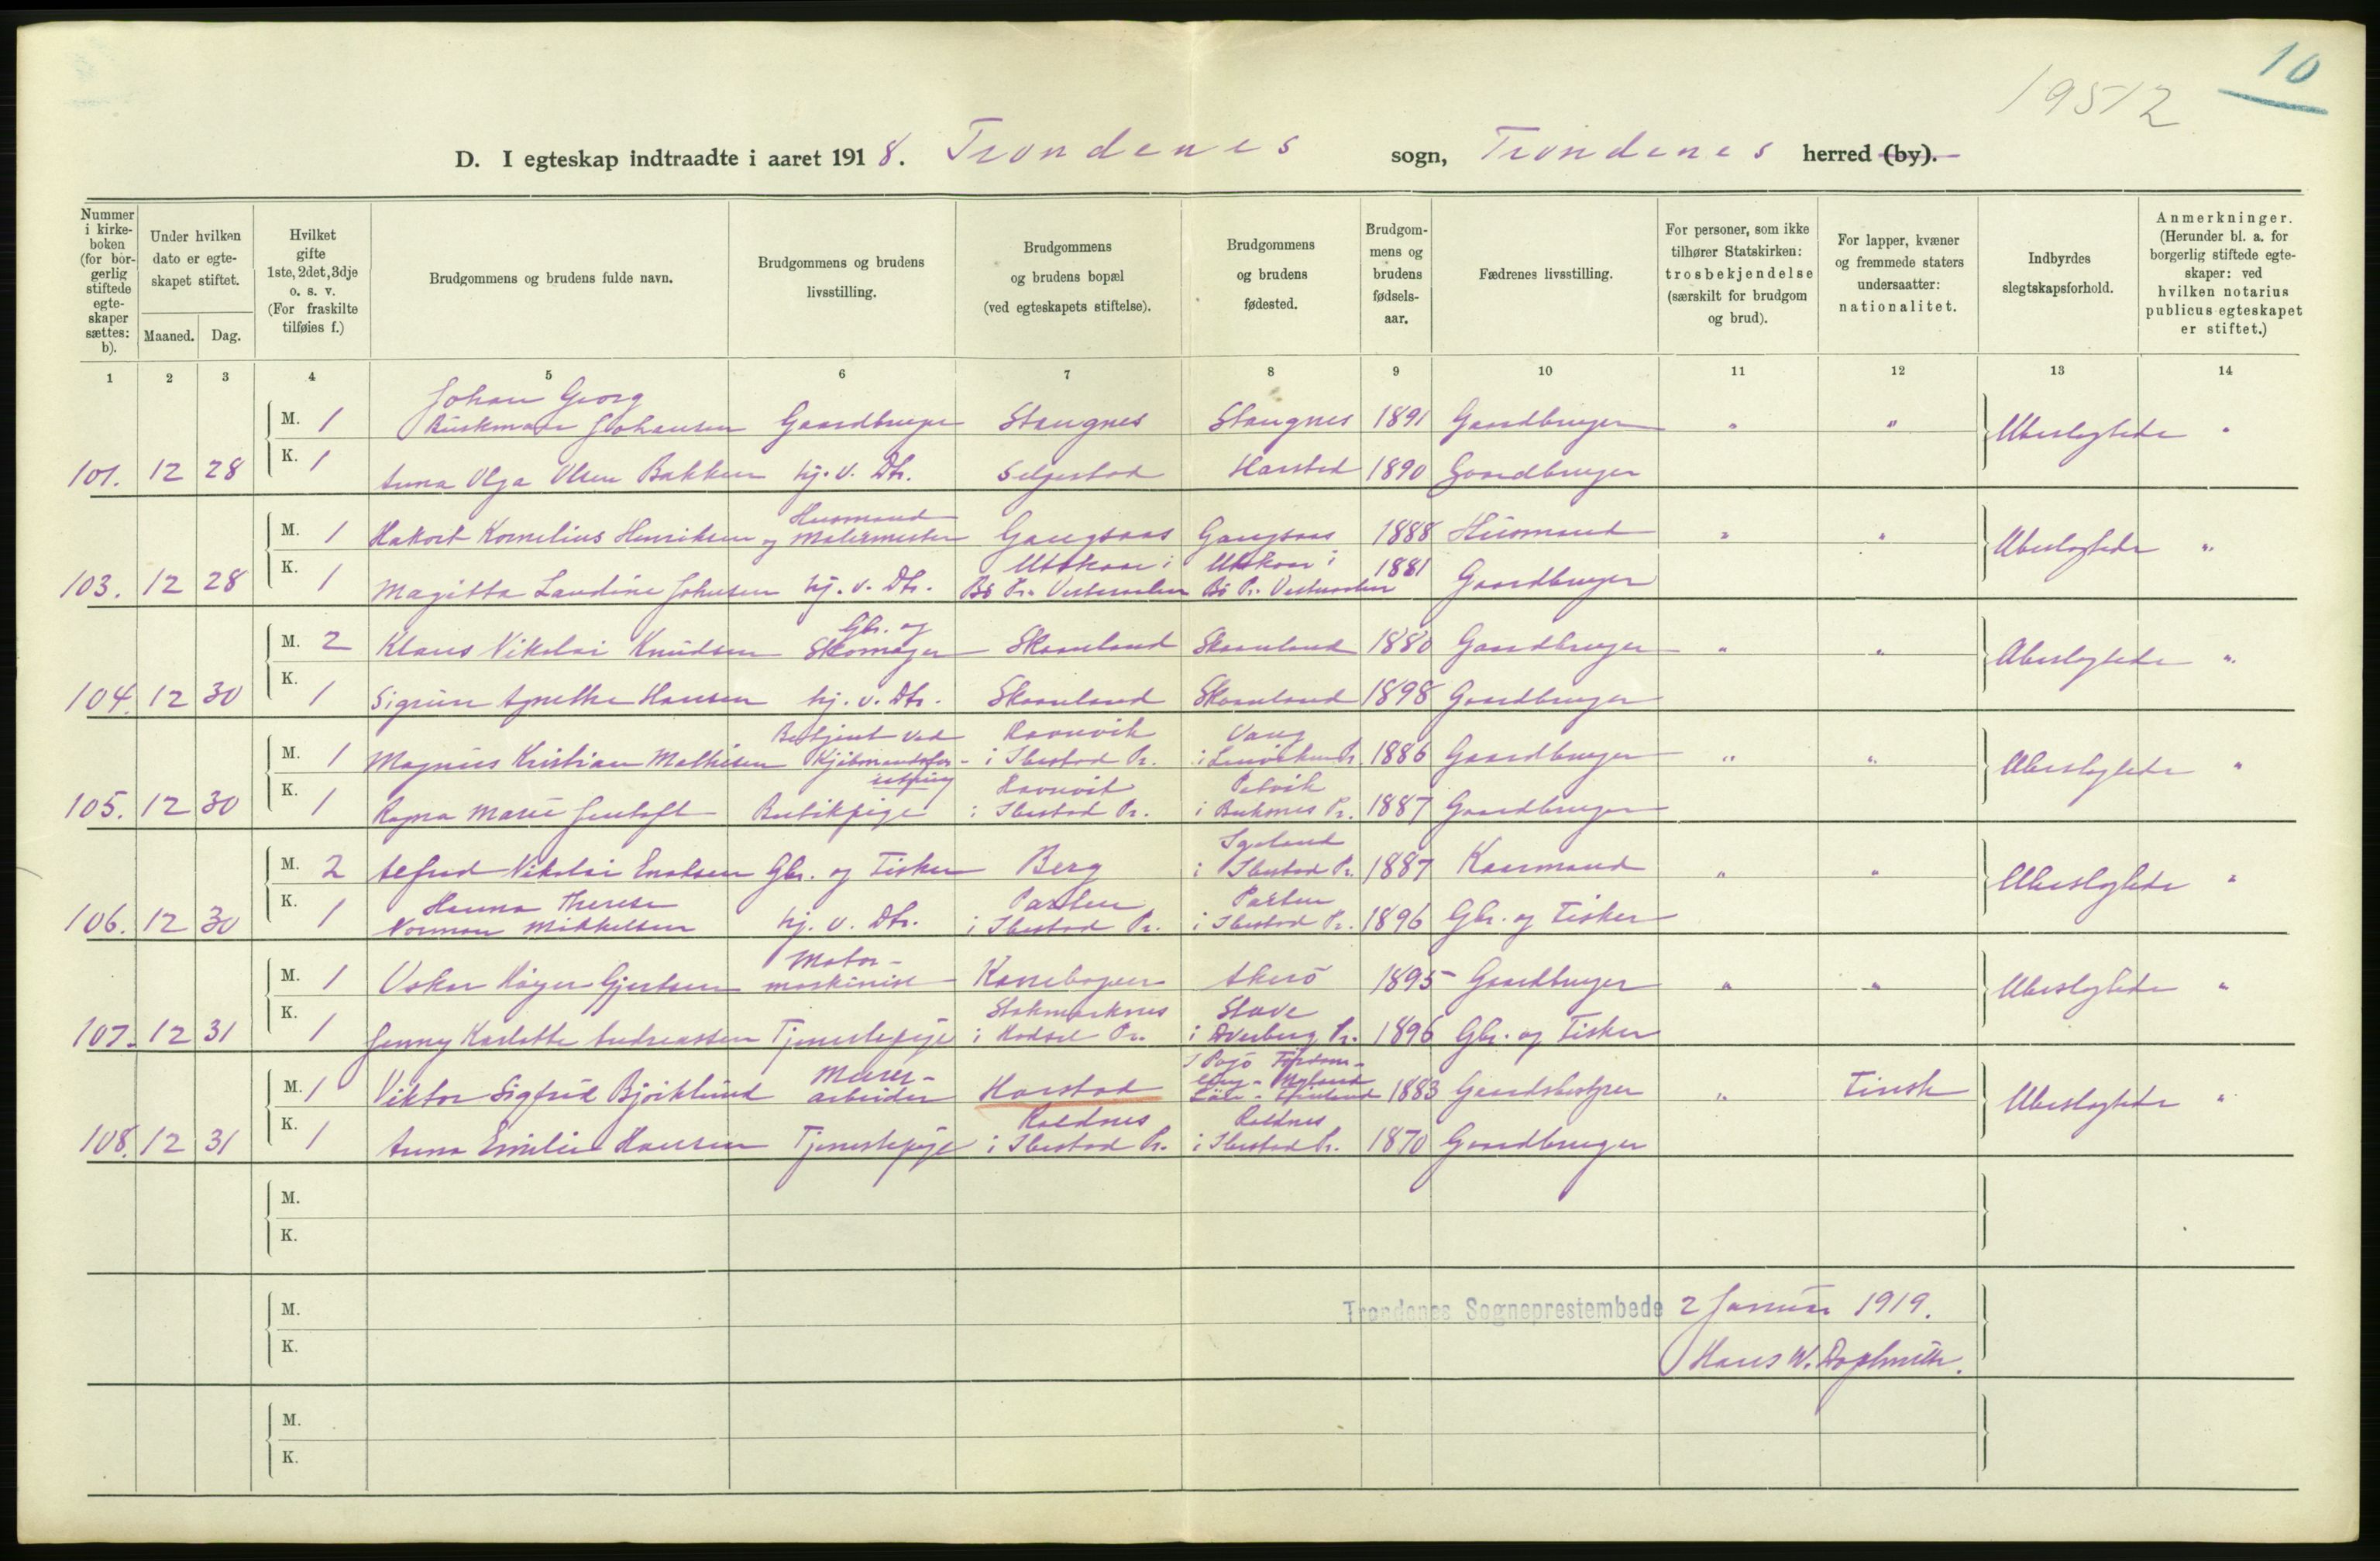 10
19512
D. I egteskap indtraadte i aaret 1918. Trondenes sogn, Trondenes herred (by).
Nummer i kirkeboken (for borgerlig stiftede egteskaper sættes: b).
Under hvilken dato er egteskapet stiftet.
Maaned. Dag.
Hvilket gifte 1ste, 2det, 3dje o. s. v. (For fraskilte tilføies f.)
Brudgommens og brudens fulde navn.
Brudgommens og brudens livsstilling.
Brudgommens og brudens bopæl (ved egteskapets stiftelse).
Brudgommens og brudens fødested.
Brudgommens og brudens fødselsaar.
Fædrenes livsstilling.
For personer, som ikke tilhører Statskirken: trosbekjendelse (særskilt for brudgom og brud).
For lapper, kvæner og fremmede staters undersaatter: nationalitet.
Indbyrdes slegtskapsforhold.
Anmerkninger. (Herunder bl. a. for borgerlig stiftede egteskaper: ved hvilken notarius publicus egteskapet er stiftet.)
1 2 3 4 5 6 7 8 9 10 11 12 13 14
M. 1 Johan Georg Johansen Gaardbruger Stangnes Stangnes 1891 Gaardbruger " " Ubeslegtede "
101. 12 28 K. 1 Anna Olga Olsen Bakken hj. v. Dtr. Seljestad Harstad 1890 Gaardbruger
M. 1 Hakort Kornelius Henriksen Husmand og Malermester Gangsaas Gangsaas 1888 Husmand " " Ubeslegtede "
103. 12 28 K. 1 Magitta Laudine Johnsen hj. v. Dtr. Utskaar i Bö Pr. Vesteraalen Utskaar i Bö Pr. Vesteraalen 1881 Gaardbruger
M. 2 Klaus Nikolai Knudsen Gbr. og Skomager Skaanland Skaanland 1880 Gaardbruger " " Ubeslegtede "
104. 12 30 K. 1 Sigrun Agnethe Hansen hj. v. Dtr. Skaanland Skaanland 1898 Gaardbruger
M. 1 Magnus Kristian Mathisen Betjent ved Kjöbmandsforretning i Ibestad Pr. Vang i Lenviken Pr. 1886 Gaardbruger " " Ubeslegtede "
105. 12 30 K. 1 Ragna Marie Jentoft Butikpige i Ibestad Pr. Petvik i Buksnes Pr. 1887 Gaardbruger
M. 2 Alfred Nikolai Enoksen Gbr. og Fisker Berg i Ibestad Pr. 1887 Kaarmand " " Ubeslegtede "
106. 12 30 K. 1 Hanna Therese Norman Mikkelsen hj. v. Dtr. i Ibestad Pr. i Ibestad Pr. 1896 Gbr. og Fisker
M. 1 Oskar Höyer Gjertsen Motormaskinist Kanebogen Akerö 1895 Gaardbruger " " Ubeslegtede "
107. 12 31 K. 1 Jenny Karlotte Andreassen Tjenestepige Stokmarknes i Hadsel Pr. Stave i Dverberg Pr. 1896 Gbr. og Fisker
M. 1 Viktor Sigfrid Björklund Murerarbeider Harstad Nyland Finland 1883 Gaardsbestyrer " Finsk Ubeslegtede "
108. 12 31 K. 1 Anna Emilie Hansen Tjenestepige Kaldnes i Ibestad Pr. Kaldnes i Ibestad Pr. 1870 Gaardbruger
M.
K.
M.
Trondenes Sogneprestembede 2 Januar 1919.
K.
Hans W.
M.
K.